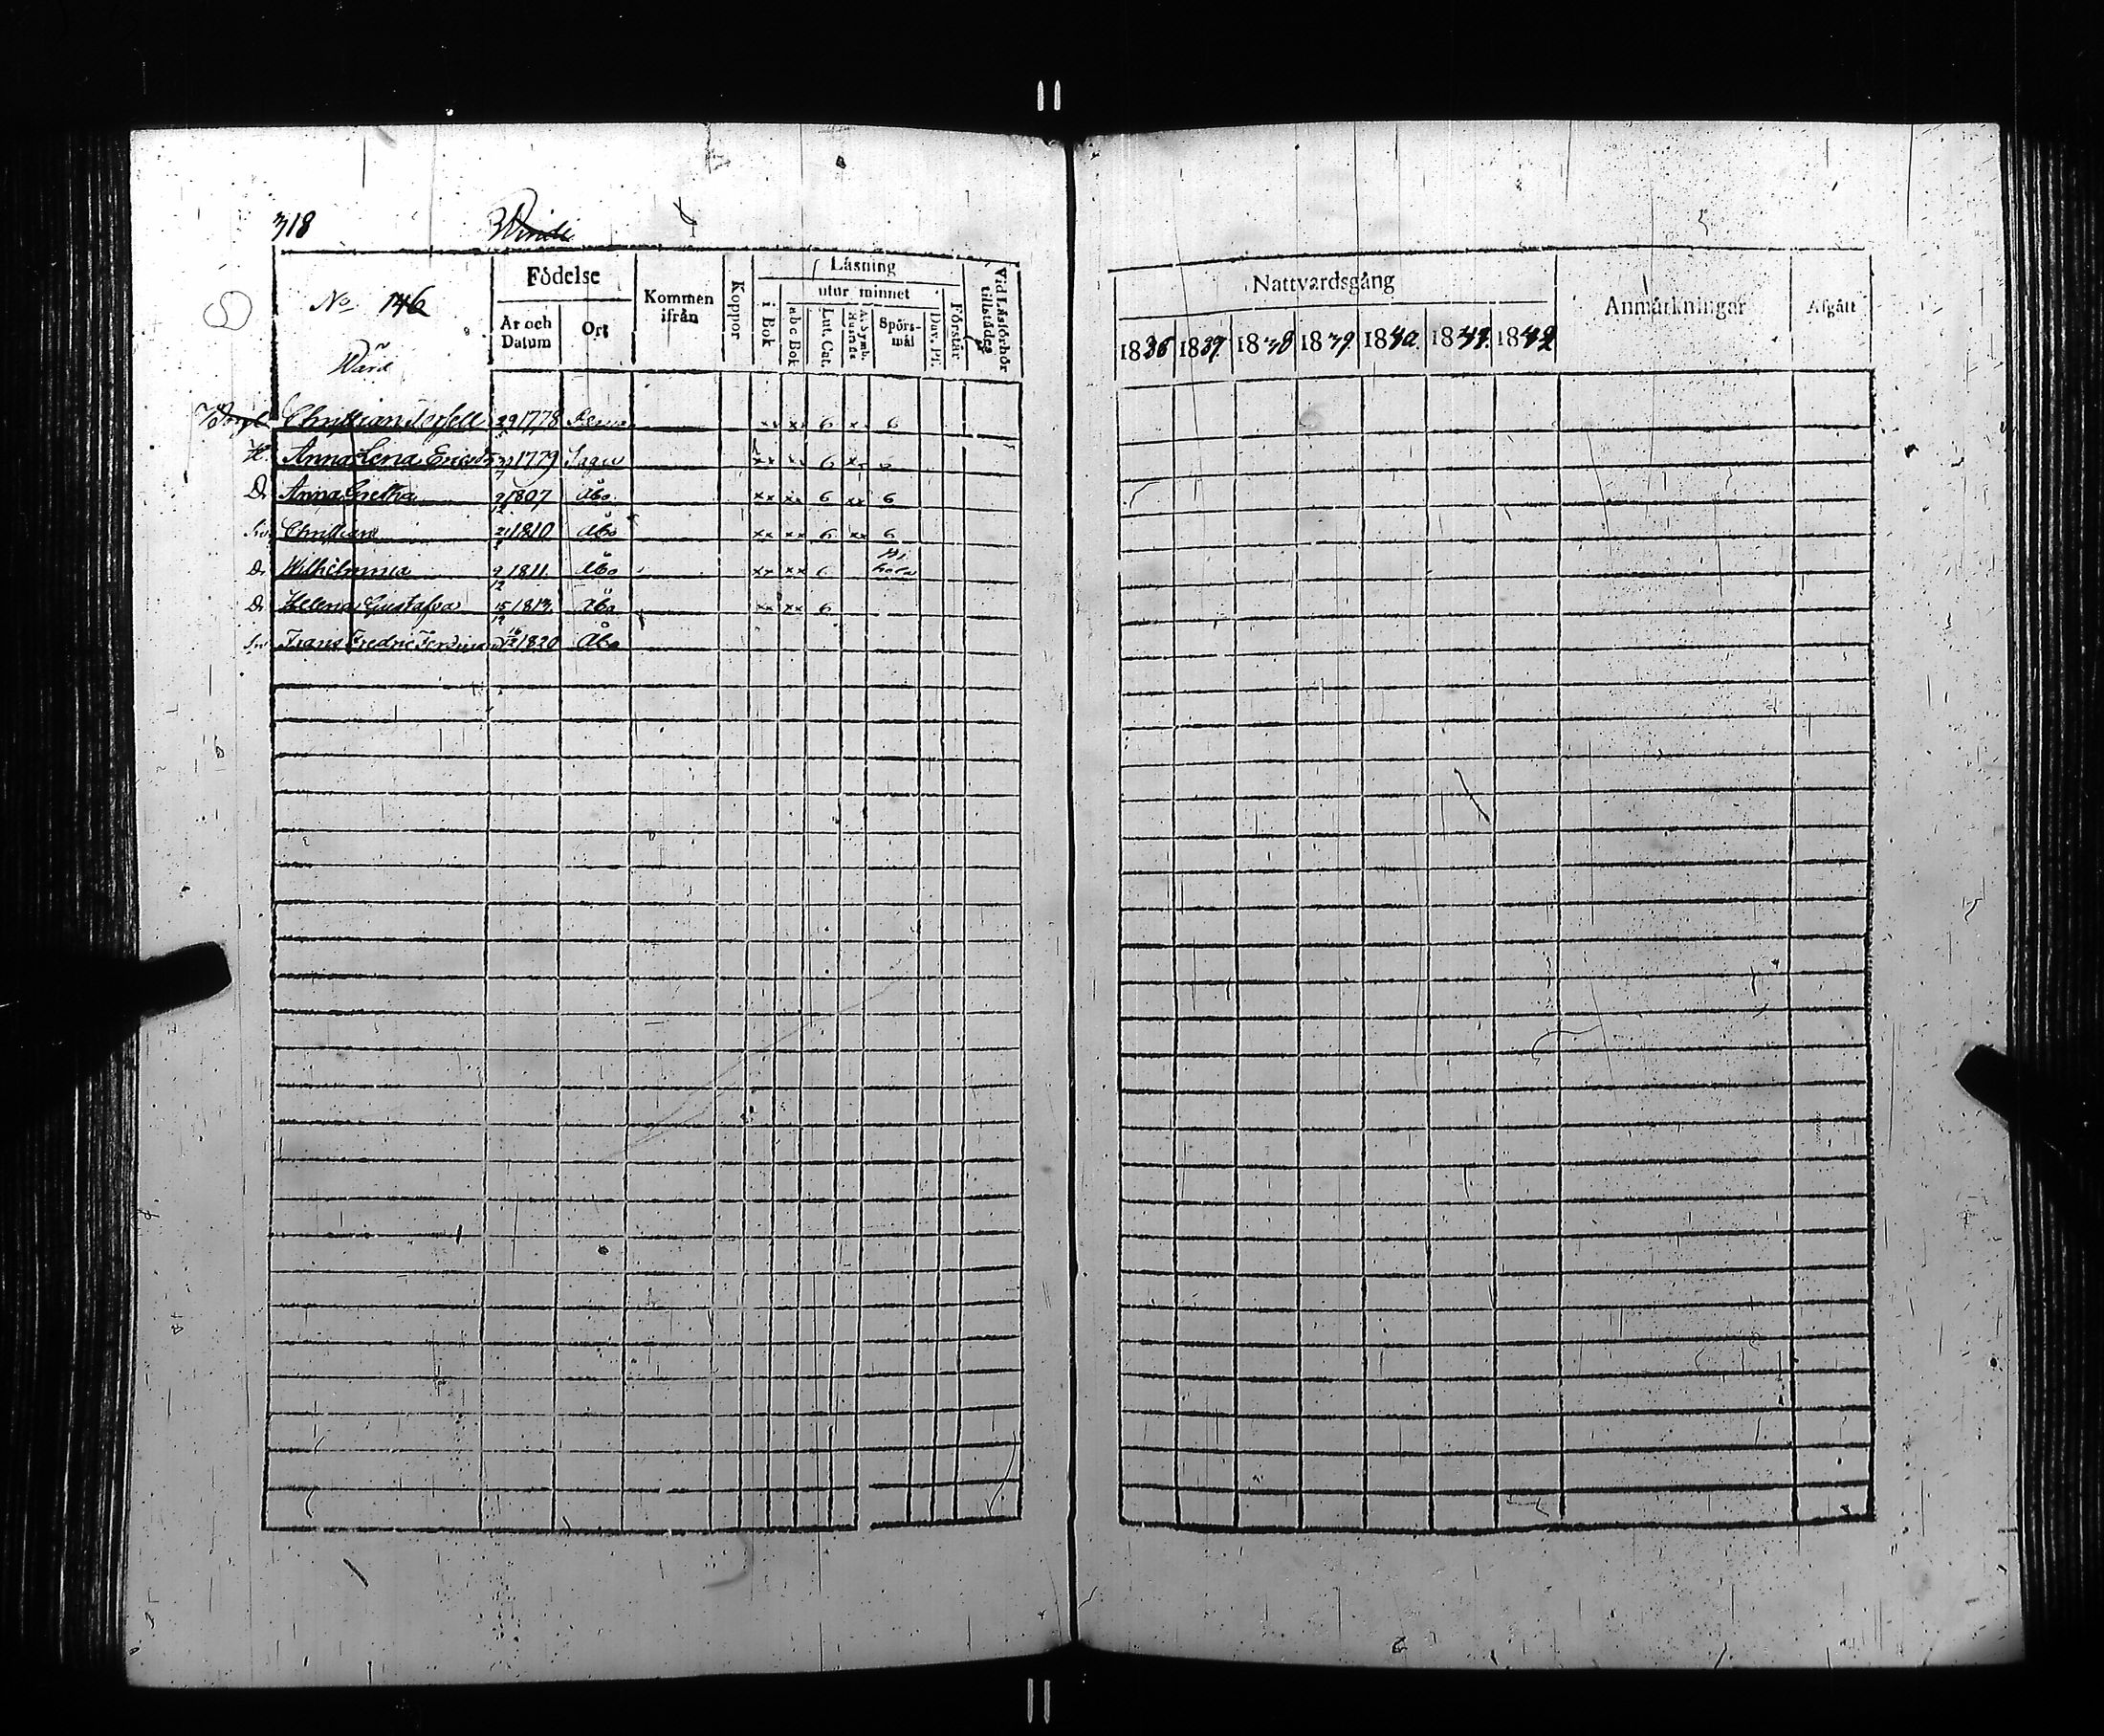 318
No 146
Wård
Födelse
Kommen ifrån
Koppor
Läsning
Vid Läsförhör tillstädes
År och Datum
Ort
i Bok
utur minnet
Förstår
abc Bok
Lut. Cat.
A. Symb. Hustafl.
Spörsmål
Dav. Ps.
Christian 29 1778 xx xx 6 x 6
H. Anna Lena Ericsdr 1779 Sagu xx xx 6 xx
D. Anna Gretha 2/12 1807 Åbo xx xx 6 xx 6
Son Christian 21 1810 Åbo xx xx 6 xx 6
D. Wilhelmina 9/12 1811 Åbo xx xx 6
D. Helena Gustafva 15/12 1813 Åbo xx xx 6
Son Frans Fredric Ferdinand 16/12 1820 Åbo
Nattvardsgång
Anmärkningar
Afgått
1836 1837 1838 1839 1840 1841 1842